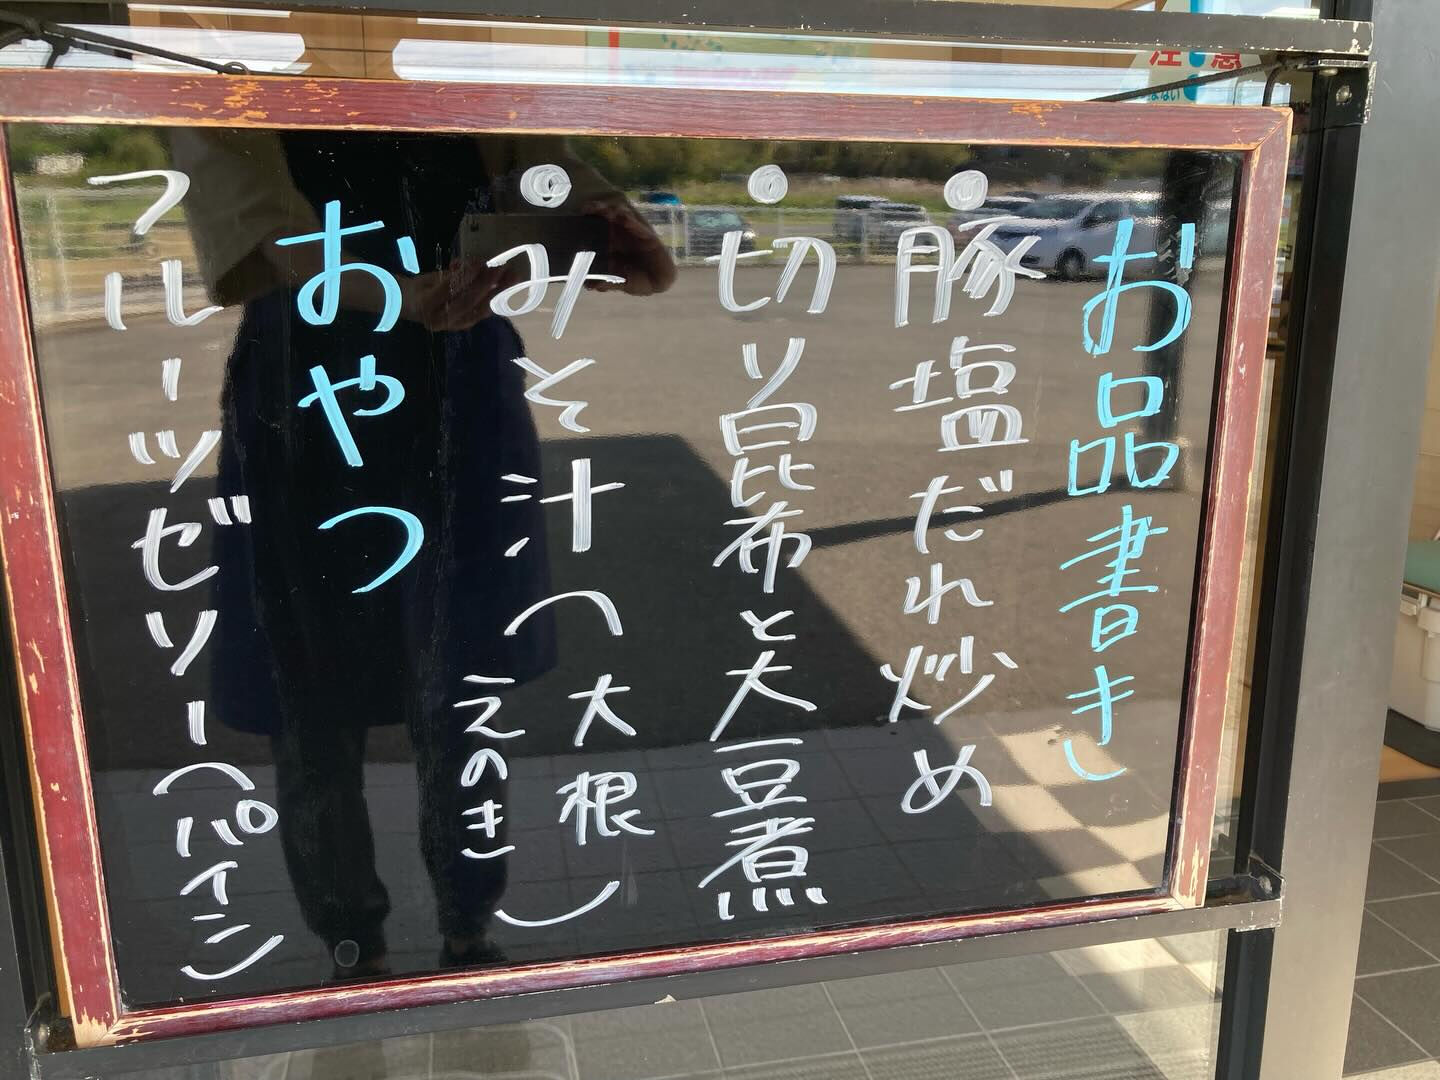 お品書き
・豚塩だれ炒め
・切り昆布と大豆煮
・みそ汁(大根
えのき)
おやつ
フルーツゼリー(パイン)
注意